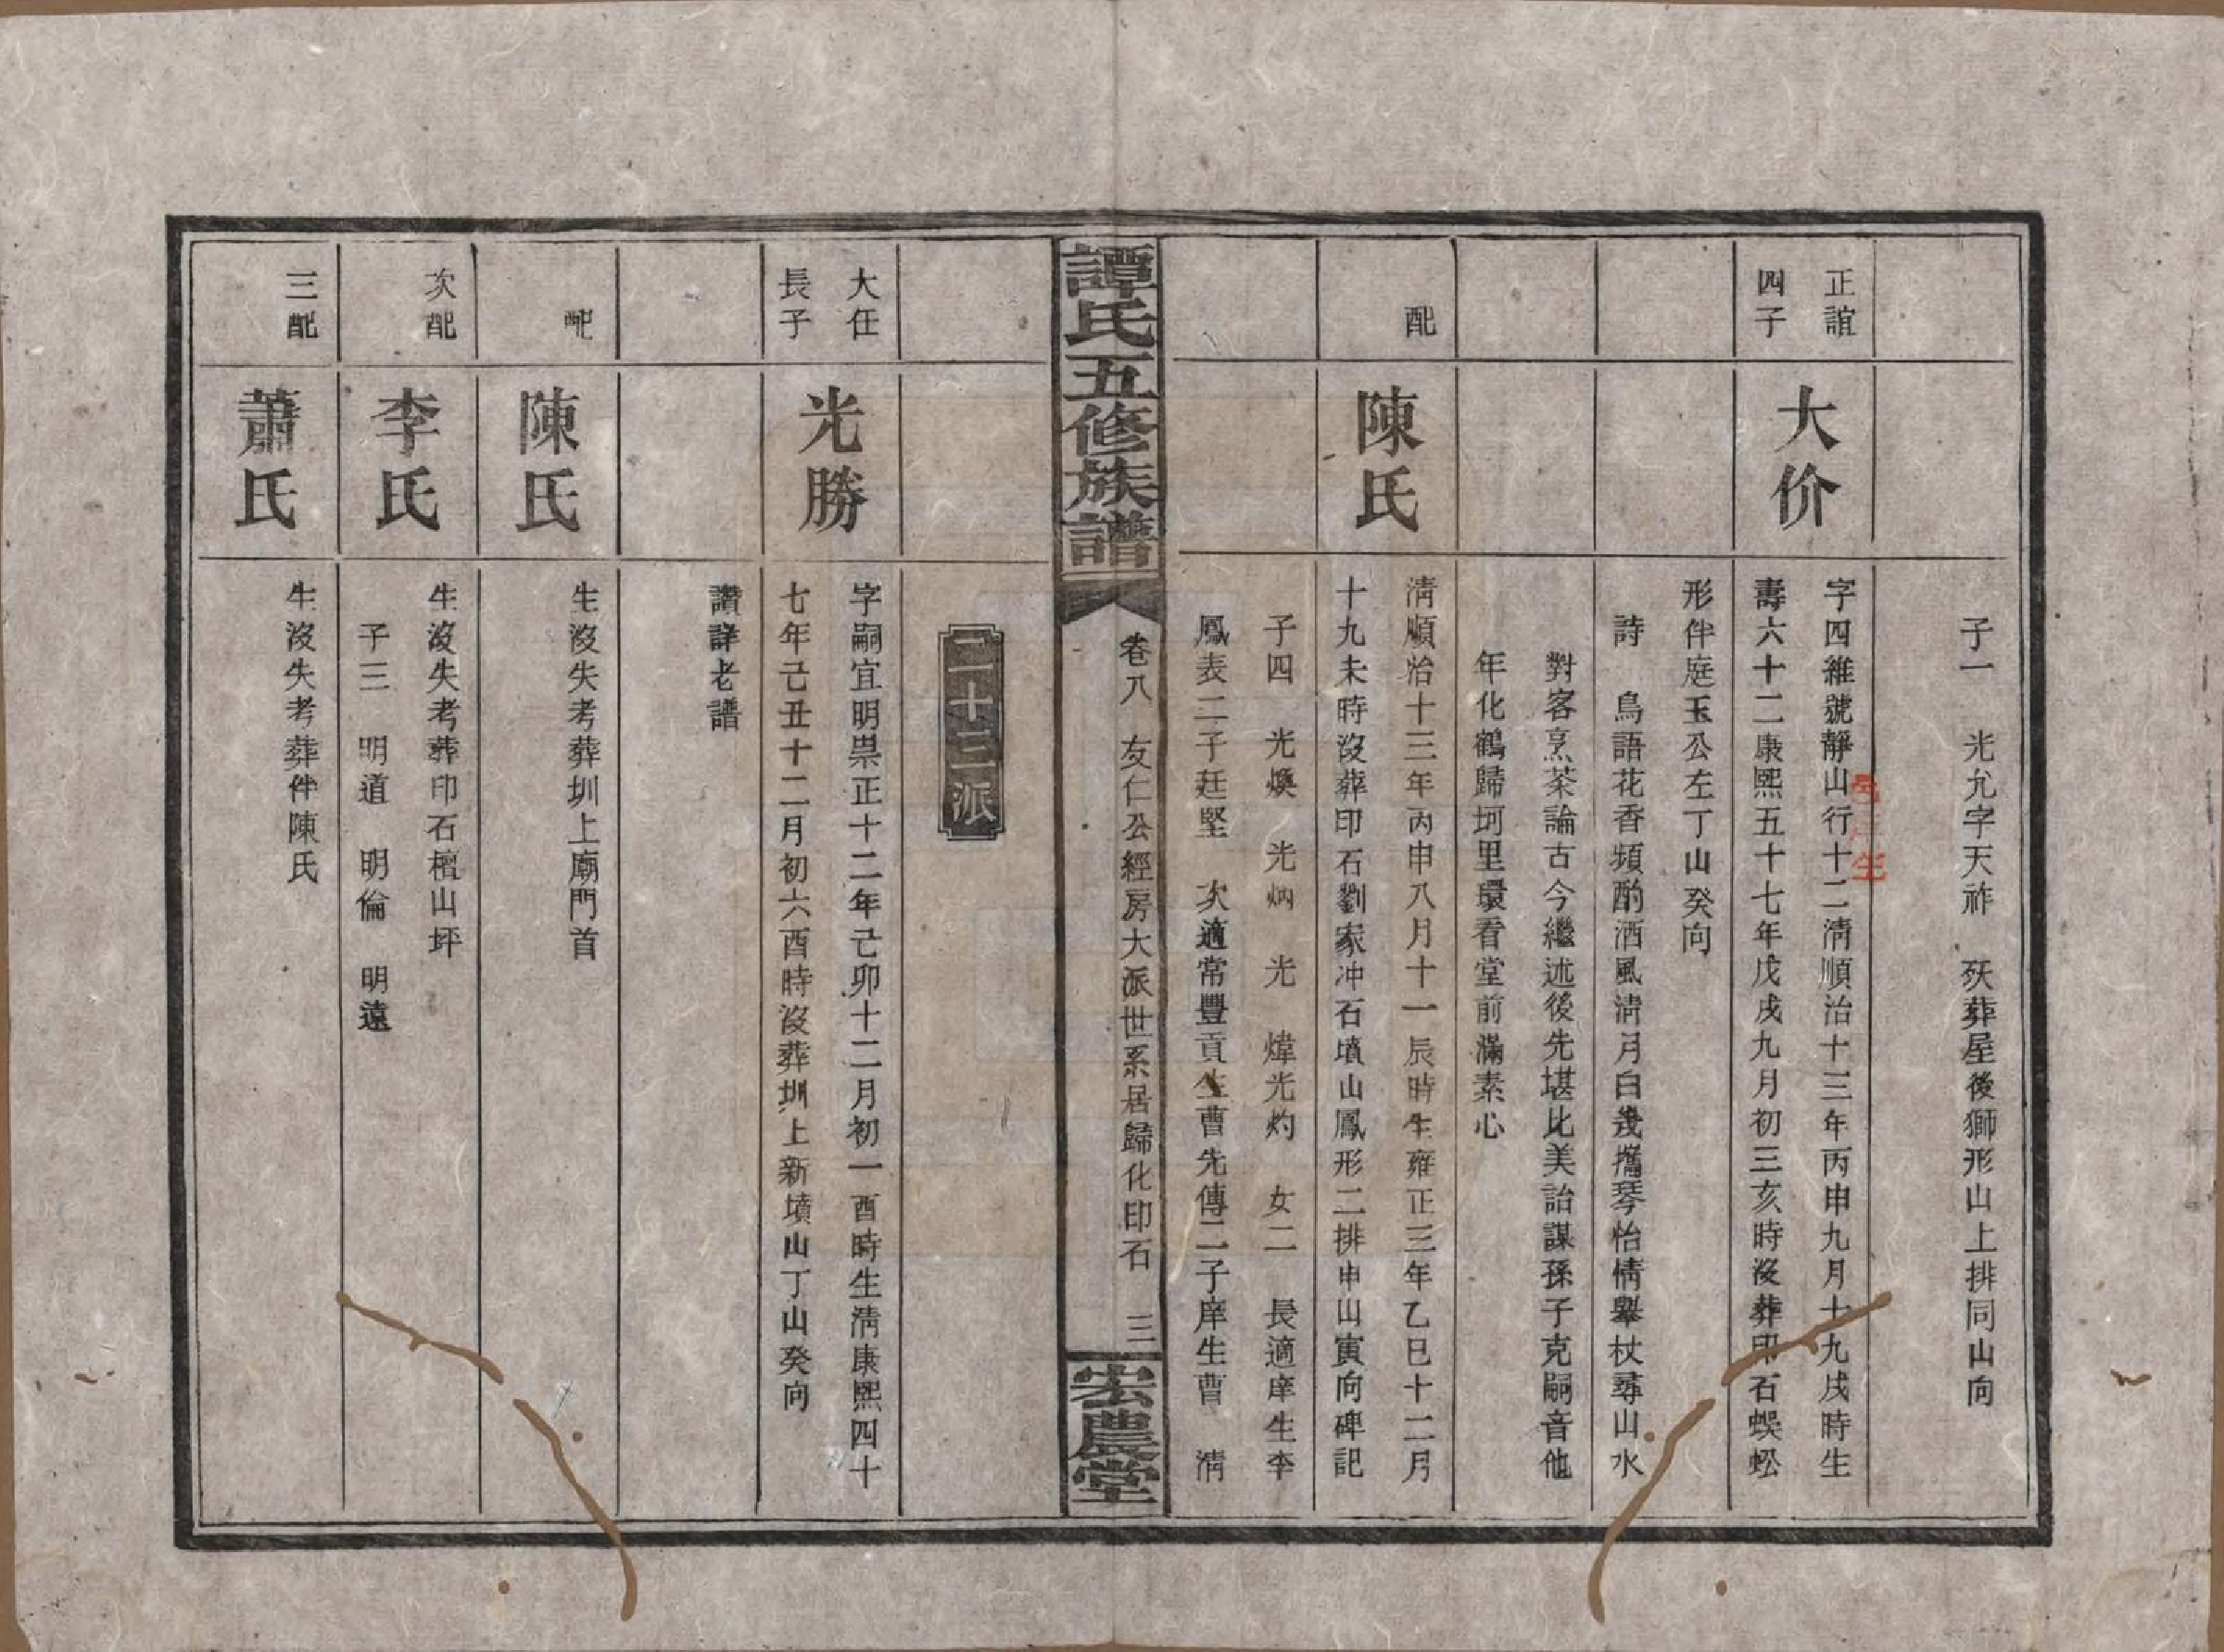 子一　光允字天祚　殀葬屋後獅形山上排同山向
正誼
四子
大价
字四維號靜山行十二淸順治十三年丙申九月十九戌時生
邑庠生
壽六十二康熙五十七年戊戌九月初三亥時沒葬印石蜈蚣
形伴庭玉公左丁山癸向
詩　鳥語花香頻酌酒風淸月白幾攜琴怡情舉杖尋山水
對客烹茶論古今繼述後先堪比美詒謀孫子克嗣音他
年化鶴歸坷里環看堂前滿素心
配
陳氏
淸順治十三年丙申八月十一辰時生雍正三年乙巳十二月
十九未時沒葬印石劉家冲石墳山鳳形二排申山寅向碑記
子四　光煥　光炳　光　煒光灼　女二　長適庠生李
鳳表二子廷堅　次適常豐貢生曹先傳二子庠生曹　淸
譚氏五修族譜
卷八　友仁公經房大派世系居歸化印石　三
宏農堂
二十三派
大任
長子
光勝
字嗣宜明崇正十二年己卯十二月初一酉時生淸康熙四十
七年己丑十二月初六酉時沒葬圳上新墳山丁山癸向
讚詳老譜
配
陳氏
生沒失考葬圳上廟門首
次配
李氏
生沒失考葬印石檀山坪
子三　明道　明倫　明遠
三配
蕭氏
生沒失考葬伴陳氏